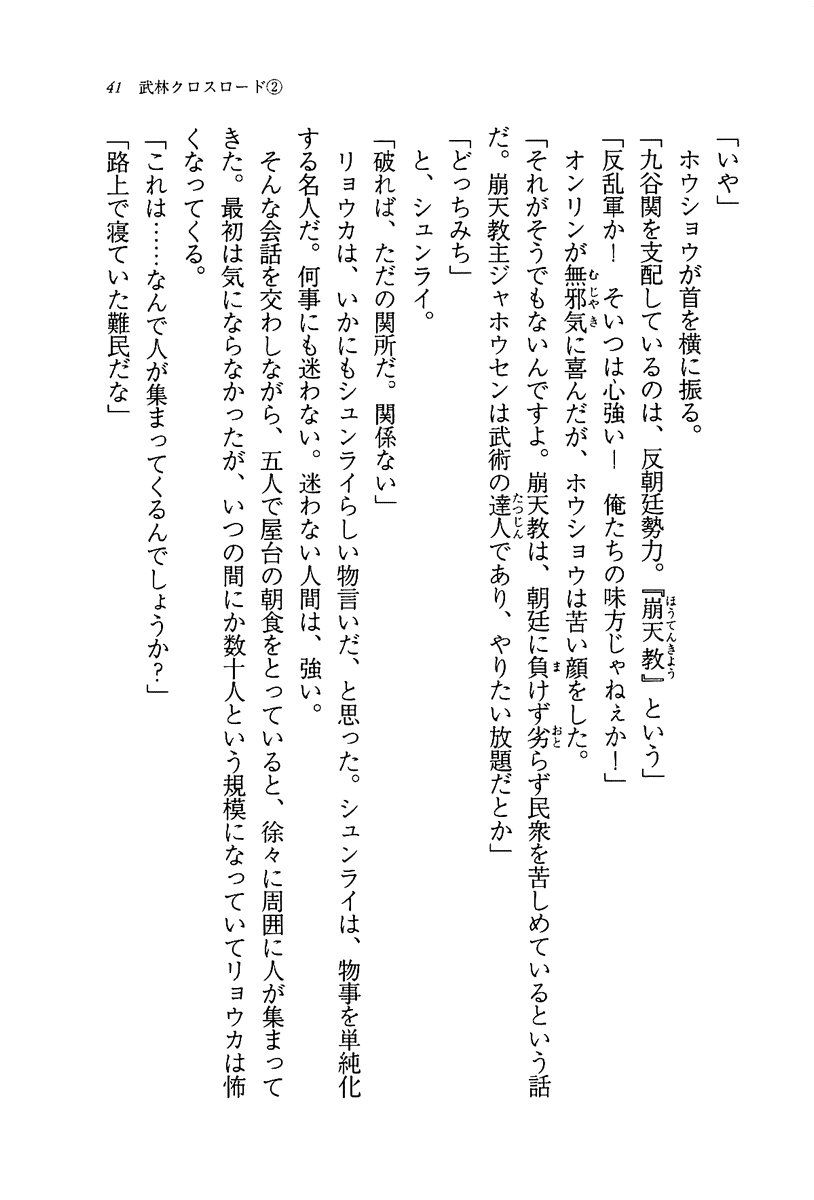 41 武林クロスロード②
「いや」
ホウショウが首を横に振る。
「九谷関を支配しているのは、反朝廷勢力。『崩天教』という」
「反乱軍か！　そいつは心強い！　俺たちの味方じゃねぇか！」
オンリンが無邪気に喜んだが、ホウショウは苦い顔をした。
「それがそうでもないんですよ。崩天教は、朝廷に負けず劣らず民衆を苦しめているという話
だ。崩天教主ジャホウセンは武術の達人であり、やりたい放題だとか」
「どっちみち」
と、シュンライ。
「破れば、ただの関所だ。関係ない」
リョウカは、いかにもシュンライらしい物言いだ、と思った。シュンライは、物事を単純化
する名人だ。何事にも迷わない。迷わない人間は、強い。
そんな会話を交わしながら、五人で屋台の朝食をとっていると、徐々に周囲に人が集まって
きた。最初は気にならなかったが、いつの間にか数十人という規模になっていてリョウカは怖
くなってくる。
「これは……なんで人が集まってくるんでしょうか？」
「路上で寝ていた難民だな」